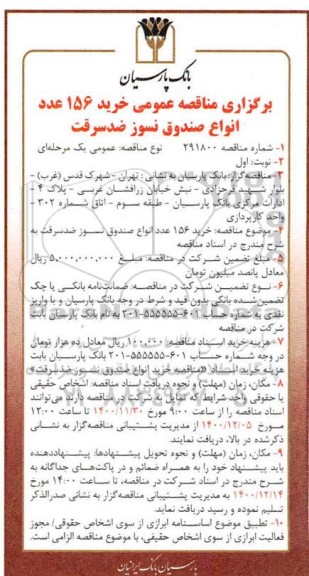 بانک پارسیان
برگزاری مناقصه عمومی خرید ۱۵۶ عدد
انواع صندوق نسوز ضدسرقت
۱- شماره مناقصه ۲۹۱۸۰۰ نوع مناقصه: عمومی یک مرحله‌ای
۲- نوبت: اول
۳- مناقصه‌گزار: بانک پارسیان به نشانی: تهران - شهرک قدس (غرب) -
بلوار شهید فرحزادی - نبش خیابان زرافشان غربی - پلاک ۴ -
ادارات مرکزی بانک پارسیان - طبقه سوم - اتاق شماره ۳۰۲ -
واحد کارپردازی
۴- موضوع مناقصه: خرید ۱۵۶ عدد انواع صندوق نسوز ضدسرقت به
شرح مندرج در اسناد مناقصه
۵- مبلغ تضمین شرکت در مناقصه: مبلغ ۵,۰۰۰,۰۰۰,۰۰۰ ریال
معادل پانصد میلیون تومان
۶- نوع تضمین شرکت در مناقصه: ضمانت‌نامه بانکی یا چک
تضمین‌شده بانکی بدون قید و شرط در وجه بانک پارسیان و یا واریز
نقدی به شماره حساب ۶۰۱-۵۵۵۵۵۵-۲۰۱ به نام بانک پارسیان بابت
شرکت در مناقصه
۷- هزینه خرید اسناد مناقصه: ۱۰۰,۰۰۰ ریال معادل ده هزار تومان
در وجه شماره حساب ۶۰۱-۵۵۵۵۵۵-۲۰۱ بانک پارسیان بابت
هزینه خرید اسناد «مناقصه خرید انواع صندوق نسوز ضدسرقت»
۸- مکان، زمان (مهلت) و نحوه دریافت اسناد مناقصه: اشخاص حقیقی
یا حقوقی واجد شرایط که تمایل به شرکت در مناقصه دارند می‌توانند
اسناد مناقصه را از ساعت ۹:۰۰ مورخ ۱۴۰۰/۱۱/۳۰ تا ساعت ۱۲:۰۰
مورخ ۱۴۰۰/۱۲/۰۵ از مدیریت پشتیبانی مناقصه‌گزار به نشانی
ذکرشده در بالا، دریافت نمایند.
۹- مکان، زمان (مهلت) و نحوه تحویل پیشنهادها: پیشنهاددهنده
باید پیشنهاد خود را به همراه ضمائم و در پاکت‌های جداگانه به
شرح مندرج در اسناد شرکت در مناقصه، تا ساعت ۱۴:۰۰ مورخ
۱۴۰۰/۱۲/۱۴ به مدیریت پشتیبانی مناقصه‌گزار به نشانی صدرالذکر
تسلیم نموده و رسید دریافت نماید.
۱۰- تطبیق موضوع اساسنامه ابرازی از سوی اشخاص حقوقی/ مجوز
فعالیت ابرازی از سوی اشخاص حقیقی، با موضوع مناقصه الزامی است.
پارسیان بانک ایرانیان